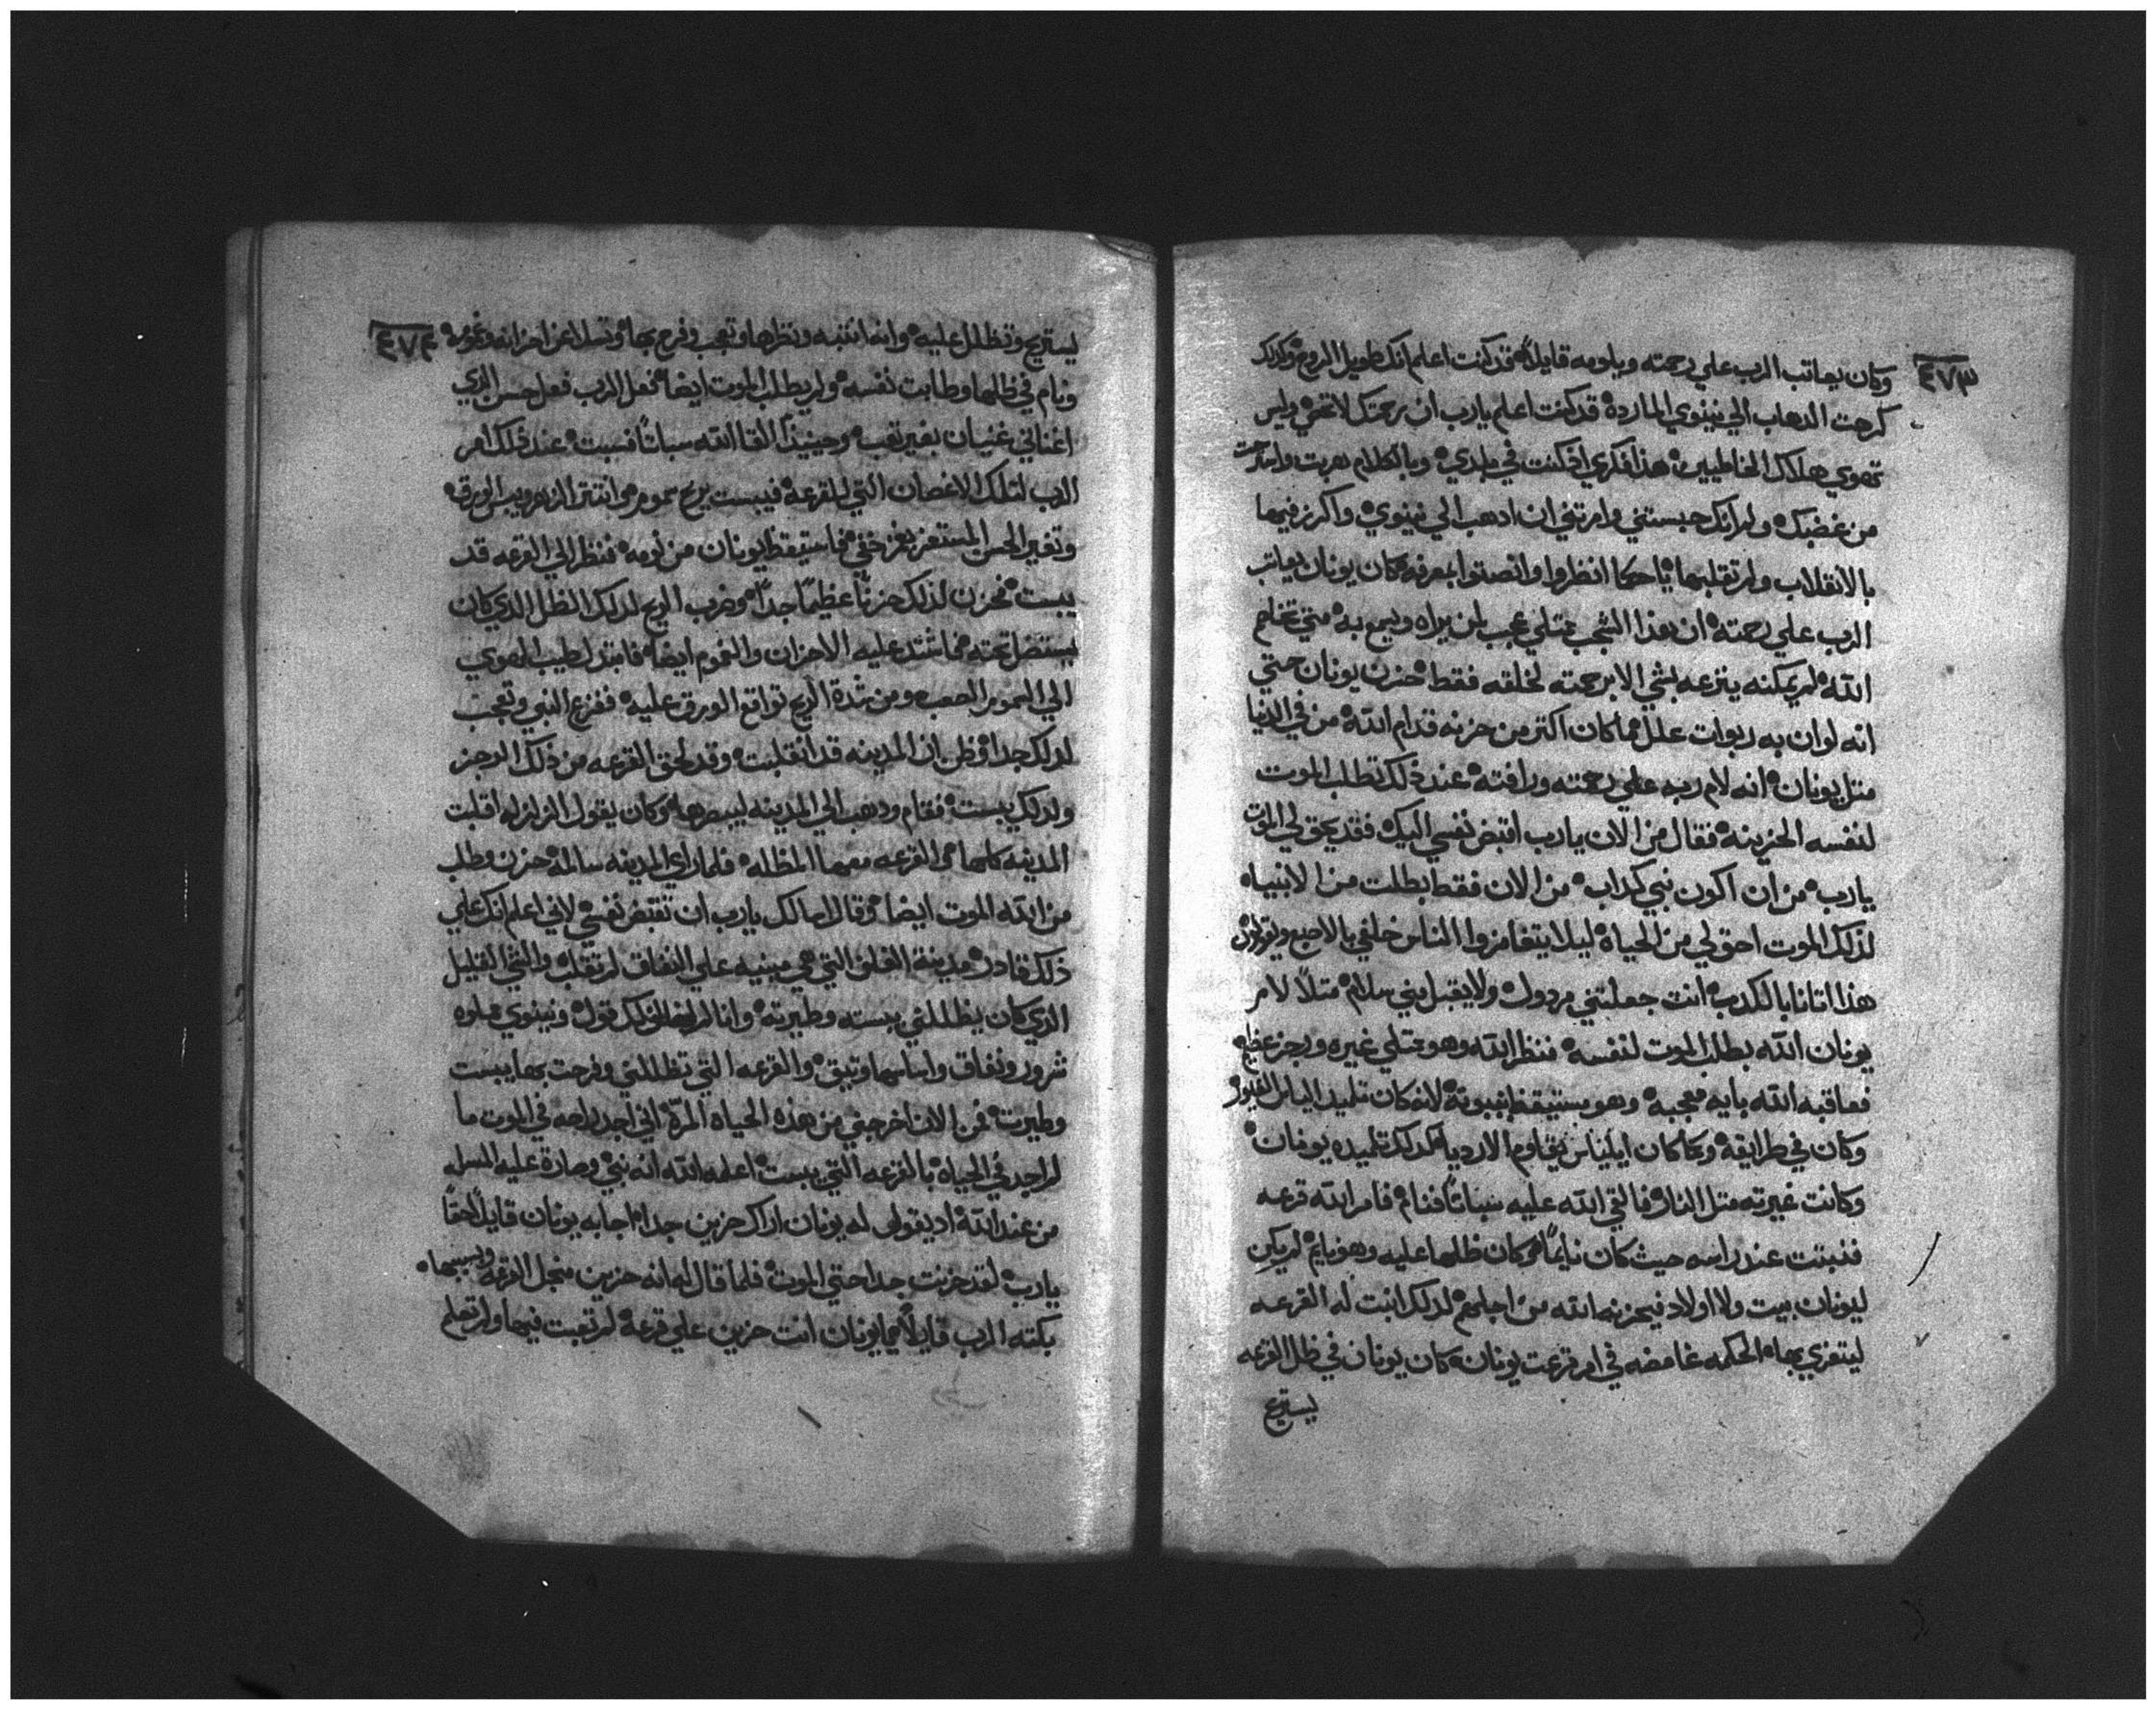 ٤٧٣
وكان يعاتب الرب علي رحمته ويلومه قايلاً قد كنت اعلم انك طويل الروح ولذلك
كرهت الدهاب الي نينوي المارده قد كنت اعلم يارب ان رحمتك لا تحصي وليس
تهوي هلاك الخاطيين هذا فكري اذ كنت في بلدي وبالكلام هربت واستترت
من غضبك ولمرانك حبستني وامرتني ان ادهب الي نينوي واكرز فيها
بالانقلاب ولم تقلبها يا حكما انظروا وانصتوا بمعرفه كان يونان يعاتب
الرب علي رحمته ان هذا الشجب ممتلي عجب لمن يراه ويسمع به متي تخاصم
الله لم يمكنه ينزعه بشي الا برحمته لخلقه فقط حزن يونان حتي
انه لو ان به ربوات علل مما كان اكتر من حزنه قدام الله من في الدنيا
متل يونان انه لام ربه علي رحمته ورافته عند ذلك تطلب الموت
لنفسه الحزينه فقال من الان يارب اقبض نفسي اليك فقد يحق لي الموت
يارب من ان اكون نبي كداب من الان فقط بطلت من الانبياه
لذلك الموت احق لي من الحياه ليلا يتغامزوا الناس خلفي بالاصبع ويقولون
هذا اتانا بالكدب انت جعلتني مردول ولا يقبل مني سلام متلاً لامر
يونان الله بطلب الموت لنفسه فنظر الله وهو ممتلي غيره ورجز عظيم
فعاقبه الله بايه معجبه وهو يستيقظ بنبوته لانه كان تلميد الياس الغيور
وكان في طرايقه وكما كان ايلياس يقاوم الارديا كدلك تلميده يونان
وكانت غيرته متل النار فالقي الله عليه سباتاً فنام فامر الله قرعه
فنبتت عند راسه حيث كان نايماً وكان ظلها عليه وهو نايم لم يكن
ليونان بيت ولا اولاد فيحزنه الله من اجلهم لدلك انبت له القرعه
ليتعزي بها الحكمه غامضه في امر قرعت يونان كان يونان في ظل القرعه
ليستريح
٤٧٤
ليستريح وتظلل عليه وانه انتبه ونظرها وتعجب وفرح بها وتسلا عن احزانه وغمومه
ونام في ظلها وطابت نفسه ولم يطلب الموت ايضا فعل الرب فعل حسن الذي
اغناني غنيان بغير تعب وحينيذاً القا الله سباتاً فسبت عند ذلك امر
الرب لتلك الاغصان التي للقرعه فيبست بريح سموم انتتر الزهر ويبس الورق
وتغير الحسن المستعز بغر ختي فاستيقظ يونان من نومه فنظر الي القرعه قد
يبست فحزن لذلك حزناً عظيماً جداً وضرب الريح لدلك الظل الذي كان
يستضل تحته فاشتد عليه الاحزان والغموم ايضا فابتدل طيب الهوي
الي السموم الصعب ومن شدة الريح تواقع الورق عليه ففزع النبي وتعجب
لدلك جدا وظن ان المدينه قد انقلبت وقد لحق القرعه من ذلك الرجز
ولدلك يبست فقام ودهب الي المدينه ليبصرها وكان يقول الزلزله اقلبت
المدينه كلها والقرعه معها المظلله فلما راي المدينه سالمه حزن وطلب
من الله الموت ايضا وقال اسالك يارب ان تقبض نفسي لاني اعلم انك علي
ذلك قادر مدينة القلق التي هي مبنيه علي النفاق لم تقلب والشي القليل
الذي كان يظللني يبسته وطيرته وانا لم قول ونينوي مملوه
شرور ونفاق واساسها وتيق والقرعه التي تظللني وفرحت بها يبست
وطيرت فمن الان اخرجني من هذه الحياه المرّه اني اجد راحه في الموت ما
لم اجد في الحياه بالقرعه التي يبست اعلمه الله انه نبي وصارة عليه المسله
من عند الله اد يقول له يونان اراك حزين جدا اجابه يونان قايلاً حقا
يارب لقد حزنت جدا حتي الموت فلما قال له انه حزين منجل القرعه ويبسها
بكته الرب قايلاً يا يونان انت حزين علي قرعه لم تعبت فيها ولم تعلم